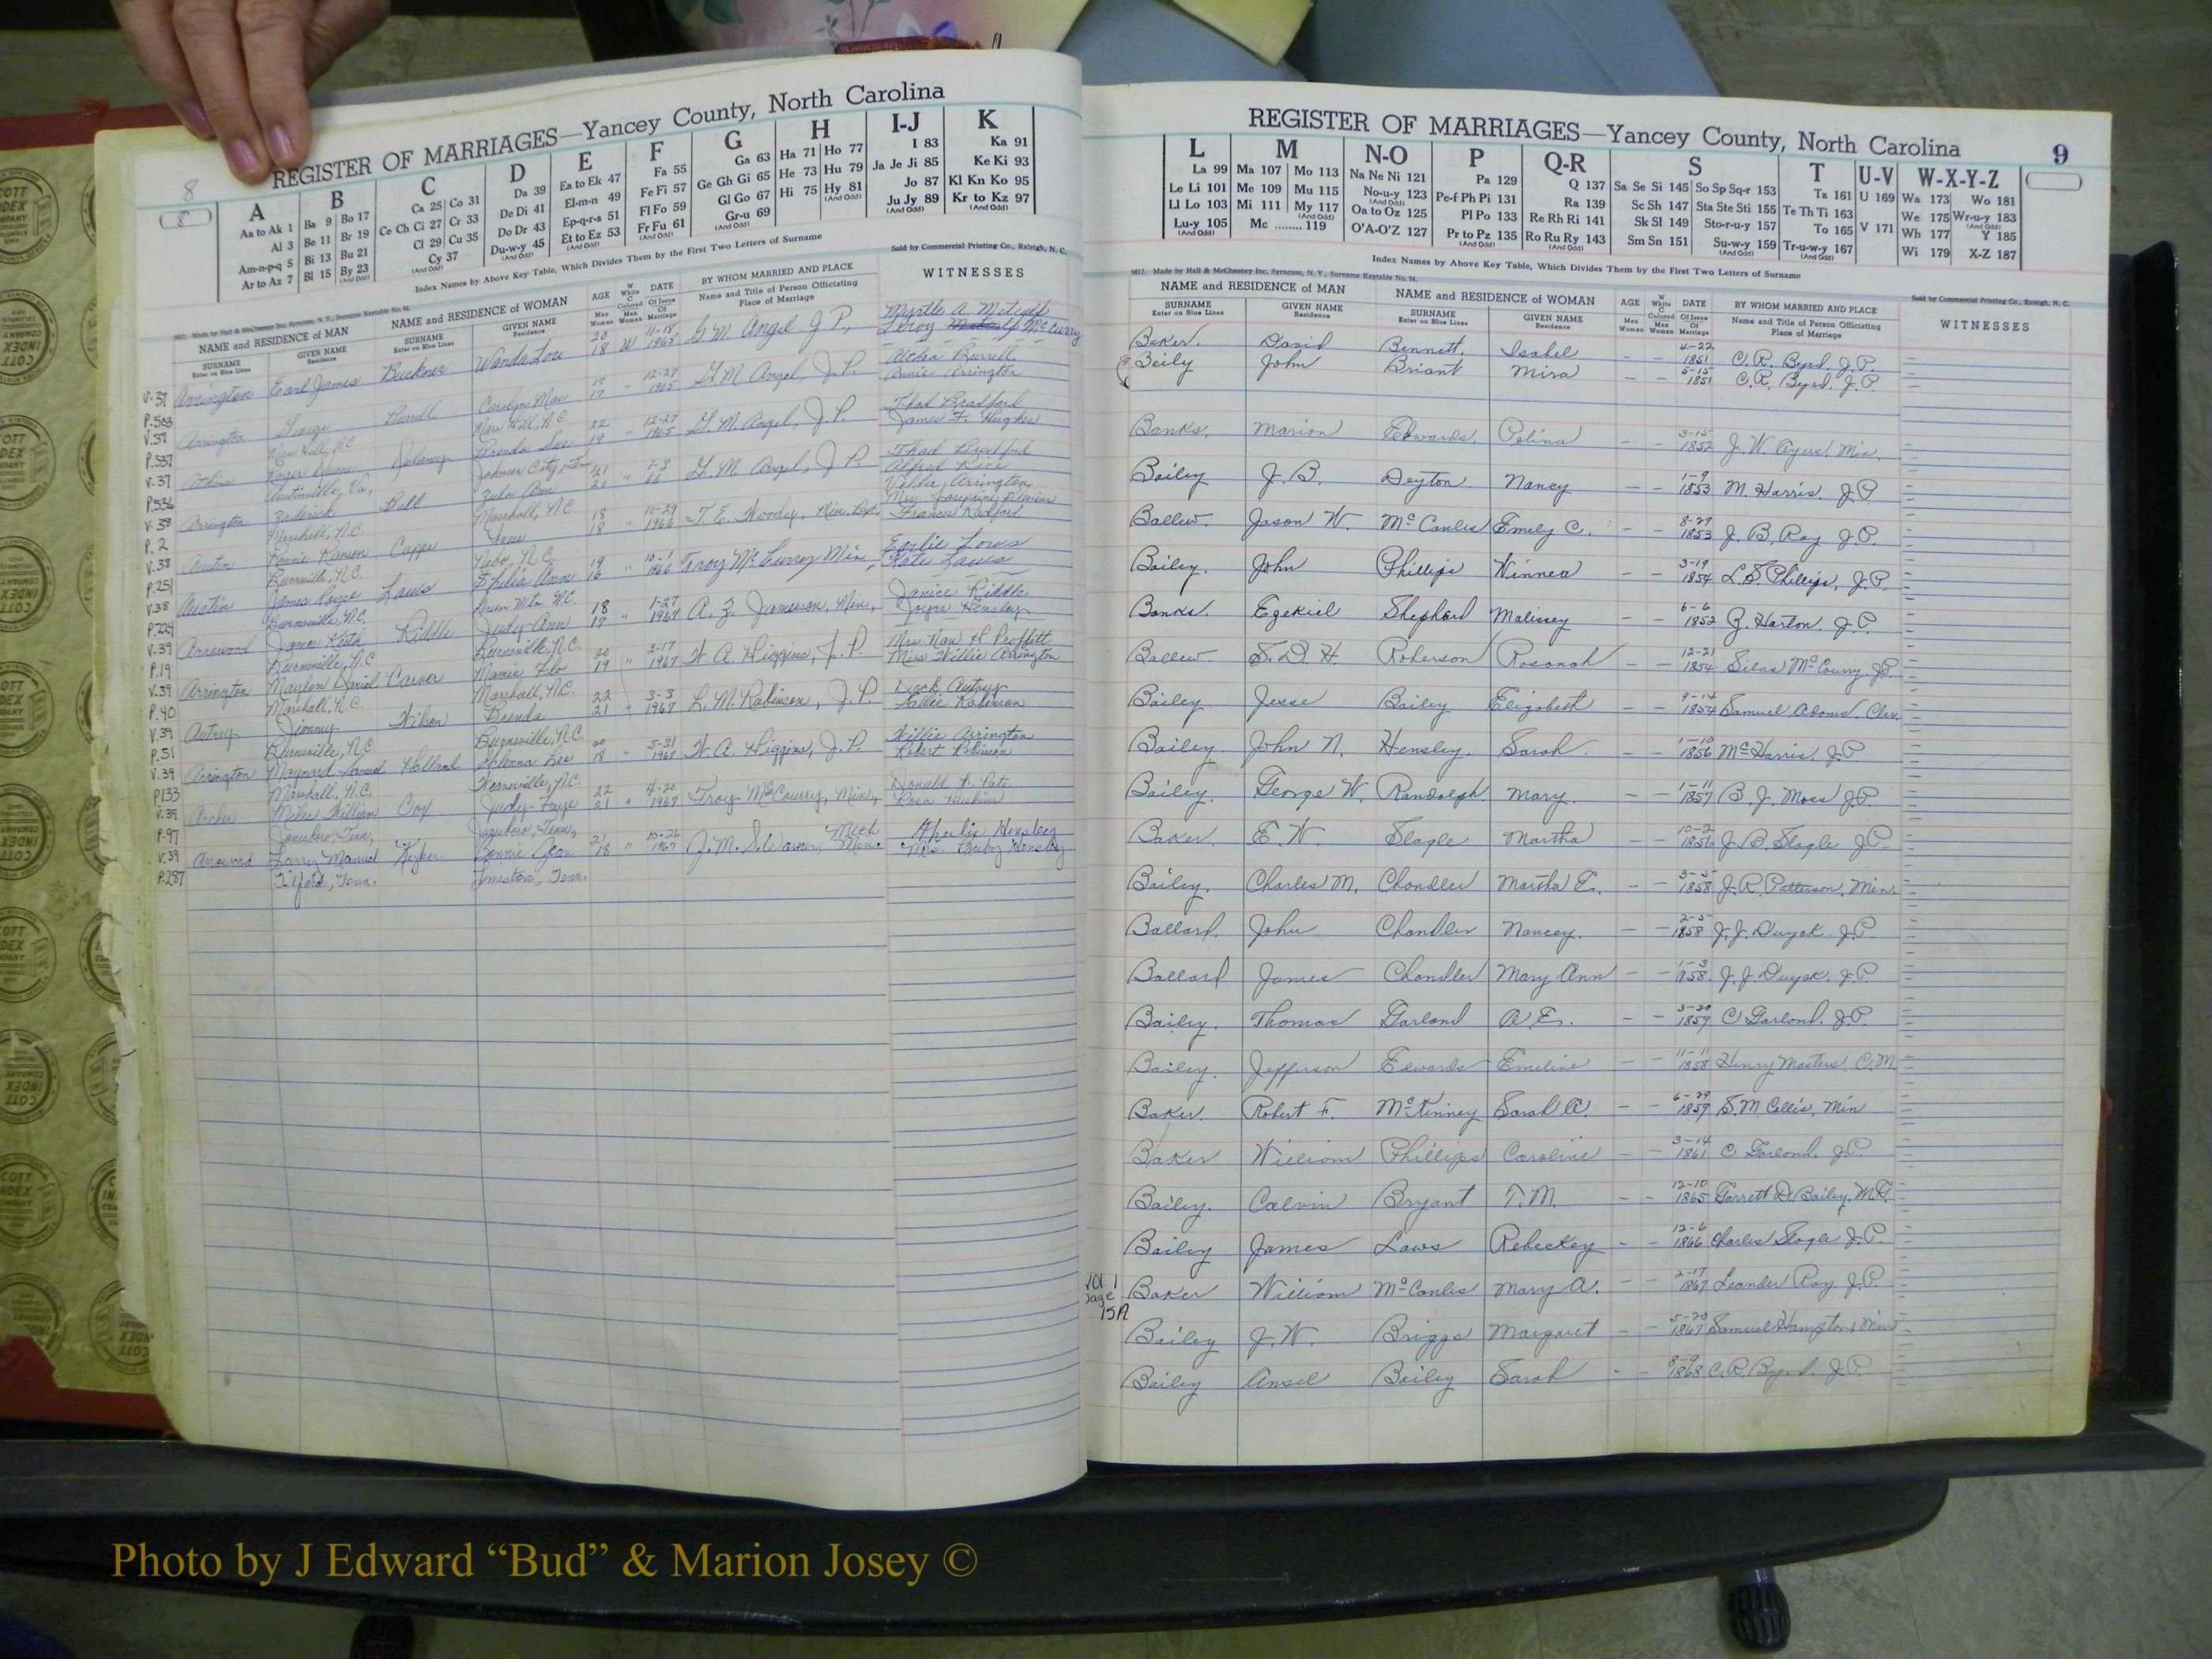 8
REGISTER OF MARRIAGES—Yancey County, North Carolina
A B C D E F G H I-J K
Aa to Ak 1 Ba 9 Bo 17 Ca 25 Co 31 Da 39 Ea to Ek 47 Fa 55 Ga 63 Ha 71 Ho 77 I 83 Ka 91
Al 3 Be 11 Br 19 Ce Ch Ci 27 Cr 33 De Di 41 El-m-n 49 Fe Fi 57 Ge Gh Gi 65 He 73 Hu 79 Ja Je Ji 85 Ke Ki 93
Am-n-p-q 5 Bi 13 Bu 21 Cl 29 Cu 35 Do Dr 43 Ep-q-r-s 51 Fl Fo 59 Gl Go 67 Hi 75 Hy 81 Jo 87 Kl Kn Ko 95
Ar to Az 7 Bl 15 By 23 Cy 37 Du-w-y 45 Et to Ez 53 Fr Fu 61 Gr-u 69 (And Odd) Ju Jy 89 Kr to Kz 97
Index Names by Above Key Table, Which Divides Them by the First Two Letters of Surname
Sold by Commercial Printing Co., Raleigh, N. C.
NAME and RESIDENCE of MAN NAME and RESIDENCE of WOMAN AGE DATE BY WHOM MARRIED AND PLACE WITNESSES
SURNAME GIVEN NAME SURNAME GIVEN NAME Name and Title of Person Officiating
Enter on Blue Lines Residence Enter on Blue Lines Residence Place of Marriage
Myrtle A. Metcalf
V.37 Arrington Earl James Buckner Wanda Lou 20 18 W 11-18 1965 G. M. Angel J. P., Leroy McCurry
P.503 Althea Burrell
V.37 Arrington George Burrell Carolyn Mae 19 17 " 12-27 1965 G. M. Angel, J. P. Annie Arrington
P.537 Mars Hill, N.C. Mars Hill, N.C. Thad Bradford
V.37 Atkins Roger Brenda Sue 22 19 " 12-27 1965 G. M. Angel, J. P. James F. Hughes
P.536 Austinville, Va., Johnson City, Tenn. Thad Bradford
V.38 Arrington Zaderick Ball Zula Ann 21 20 " 1-3 66 G. M. Angel, J. P. Alfred Rice
P.2 Marshall, N.C. Marshall, N.C. Velda Arrington
V.38 Austin Ronnie Capps 18 18 " 10-29 1966 T. E. Woody, Min. Frances Radford
P.251 Burnsville, N.C. Nebo, N.C. Earlie Laws
V.38 Austin James Laws Ann 19 16 " 10-1 1966 Troy McCurry Min. Kate Laws
P.224 Burnsville, N.C. Green Mtn. N.C. Janice Riddle
V.39 Arrowood James Keith Riddle Judy Ann 18 17 " 1-27 1967 A. Z. Jamerson, Min., Joyce Hensley
P.19 Burnsville, N.C. Burnsville, N.C.
V.39 Arrington Maylon Daniel Carver Mamie Flo 20 19 " 2-17 1967 W. A. Higgins, J. P. Miss Willie Arrington
P.40 Marshall, N.C. Marshall, N.C. Dock Autrey
V.39 Autrey Jimmy Wilson Brenda 22 21 " 3-3 1967 L. M. Robinson, J. P. Sallie Robinson
P.51 Burnsville, N.C. Burnsville, N.C. Willie Arrington
V.39 Arrington Maynard Samuel Holland 20 18 " 5-31 1967 W. A. Higgins, J. P. Robert Robinson
P.133 Marshall, N.C. N.C. Donald R. Pate
V.39 Archer Miles William Cox Judy Faye 22 21 " 4-20 1967 Troy McCourry, Min., Rosa Huskins
P.97 Jonesboro, Tenn., Jonesboro, Tenn., Hensley
V.39 Arrowood Larry Manuel Keplinger Bonnie Jean 21 18 " 10-26 1967 Meth Min.
P.287 Telford, Tenn. Limestone, Tenn.
REGISTER OF MARRIAGES—Yancey County, North Carolina 9
L M N-O P Q-R S T U-V W-X-Y-Z
La 99 Ma 107 Mo 113 Na Ne Ni 121 Pa 129 Q 137 Sa Se Si 145 So Sp Sq-r 153 Ta 161 U 169 Wa 173 Wo 181
Le Li 101 Me 109 Mu 115 No-u-y 123 Pe-f Ph Pi 131 Ra 139 Sc Sh 147 Sta Ste Sti 155 Te Th Ti 163 We 175 Wr-u-y 183
Ll Lo 103 Mi 111 My 117 Oa to Oz 125 Pl Po 133 Re Rh Ri 141 Sk Sl 149 Sto-r-u-y 157 To 165 V 171 Wh 177 Y 185
Lu-y 105 Mc 119 O'A-O'Z 127 Pr to Pz 135 Ro Ru Ry 143 Sm Sn 151 Su-w-y 159 Tr-u-w-y 167 Wi 179 X-Z 187
Index Names by Above Key Table, Which Divides Them by the First Two Letters of Surname
5617. Made by Hall & McChesney Inc, Syracuse, N. Y., Surname Keytable No. 94.
Sold by Commercial Printing Co., Raleigh, N. C.
NAME and RESIDENCE of MAN NAME and RESIDENCE of WOMAN AGE DATE BY WHOM MARRIED AND PLACE WITNESSES
SURNAME GIVEN NAME SURNAME GIVEN NAME Name and Title of Person Officiating
Enter on Blue Lines Residence Enter on Blue Lines Residence Place of Marriage
Baker. David Bennett. Isabel — — 4-22 1851 C. R. Byrd, J.P.
Baily John Briant Mira — — 5-15 1851 C. R. Byrd, J.P.
Banks. Marion Edwards. Polina — — 3-15 1852 J. W. Ayers, Min.
Bailey J. B. Deyton. Nancy — — 1-9 1853 M. Harris. J.P.
Ballew. Jason W. McCanles Emily C. — — 8-29 1853 J. B. Ray J.P.
Bailey. John Phillips Winnea — — 3-19 1854 L. S. Phillips, J.P.
Banks. Ezekiel Shephard Malissey — — 6-6 1852 Z. Horton. J.P.
Ballew. S. D. H. Roberson Rosonah — — 12-21 1854 Silas McCourry. J.P.
Bailey. Jesse Bailey Elizabeth — — 9-14 1854 Samuel Adams. Cler.
Bailey. John N. Hensley. Sarah. — — 1-10 1856 Mc Harris. J.P.
Bailey. George W. Randolph. Mary. — — 1-11 1857 B. J. Moss J.P.
Baker. E. W. Slagle Martha — — 10-2 1856 J. B. Slagle J.P.
Bailey. Charles M. Chandler Martha E. — — 3-5 1858 J. R. Patterson, Min.
Ballard. John Chandler Nancey. — — 2-5 1858 J. J. Duyck. J.P.
Ballard James Chandler Mary Ann — — 1-3 1858 J. J. Duyck. J.P.
Bailey. Thomas Garland A E. — — 3-20 1859 C Garland. J.P.
Bailey. Jefferson Edwards Emeline — — 11-11 1858 Henry Masters, C.M.
Baker. Robert F. McKinney Sarah A. — — 6-29 1859 S. M Collis, Min
Baker William Phillips Caroline — — 3-14 1861 C. Garland. J.P.
Bailey. Calvin Bryant T. M. — — 12-10 1865 Garrett D. Bailey. M.G.
Bailey James Laws Rebeckey — — 12-6 1866 Charles Slagle J.P.
Vol 1 Page 15A Baker William McCanles Mary A. — — 2-17 1867 Leander Ray, J.P.
Bailey J. W. Briggs Margaret — — 5-20 1867 Samuel Hampton, Min
Bailey Ansel Bailey Sarah — — 8-9 1868 C. R. Byrd, J.P.
Photo by J Edward “Bud” & Marion Josey ©